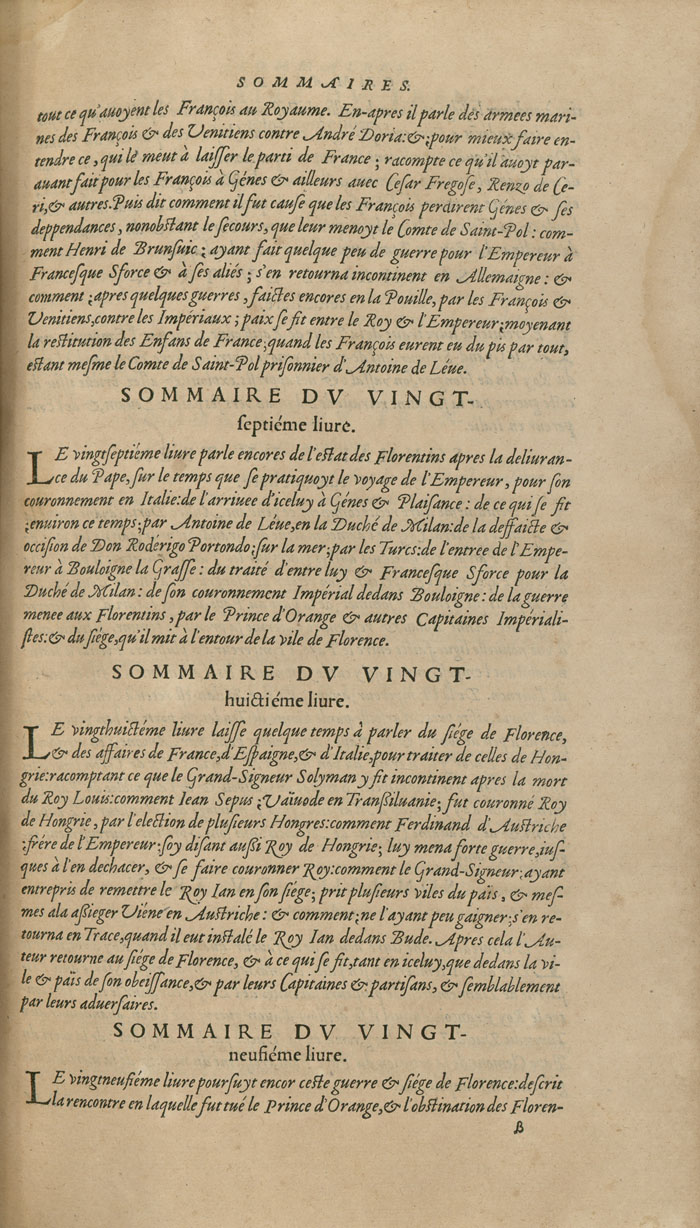 SOMMAIRES.
tout ce qu'auoyent les François au Royaume. En-apres il parle des armees mari-
nes des François & des Venitiens contre André Doria:&;pour mieux faire en-
tendre ce, qui le meut à laisser le parti de France; racompte ce qu'il auoyt par-
auant fait pour les François à Génes & ailleurs auec Cesar Fregose, Renzo de Ce-
ri,& autres.Puis dit comment il fut cause que les François perdirent Génes & ses
deppendances, nonobstant le secours, que leur menoyt le Comte de Saint-Pol: com-
ment Henri de Brunsuic; ayant fait quelque peu de guerre pour l'Empereur à
Francesque Sforce & à ses aliés; s'en retourna incontinent en Allemaigne: &
comment;apres quelques guerres, faictes encores en la Pouille, par les François &
Venitiens,contre les Impériaux; paix se fit entre le Roy & l'Empereur;moyenant
la restitution des Enfans de France;quand les François eurent eu du pis par tout,
estant mesme le Comte de Saint-Pol prisonnier d'Antoine de Léue.
SOMMAIRE DV VINGT-
septiéme liure.
LE vingtseptiéme liure parle encores de l'estat des Florentins apres la deliuran-
ce du Pape, sur le temps que se pratiquoyt le voyage de l'Empereur, pour son
couronnement en Italie:de l'arriuee d'iceluy à Génes & Plaisance: de ce qui se fit
;enuiron ce temps;par Antoine de Léue,en la Duché de Milan:de la deffaicte &
occision de Don Rodérigo Portondo;sur la mer;par les Turcs:de l'entree de l'Empe-
reur à Bouloigne la Grasse: du traité d'entre luy & Francesque Sforce pour la
Duché de Milan: de son couronnement Impérial dedans Bouloigne: de la guerre
menee aux Florentins, par le Prince d'Orange & autres Capitaines Impériali-
stes:& du siége,qu'il mit à l'entour de la vile de Florence.
SOMMAIRE DV VINGT-
huictiéme liure.
LE vingthuictéme liure laisse quelque temps à parler du siége de Florence,
& des affaires de France,d'Espaigne,& d'Italie,pour traiter de celles de Hon-
grie:racomptant ce que le Grand-Signeur Solyman y fit incontinent apres la mort
du Roy Louis:comment Iean Sepus ;Vaïuode en Transsiluanie; fut couronné Roy
de Hongrie, par l'election de plusieurs Hongres:comment Ferdinand d'Austriche
;frére de l'Empereur;soy disant aussi Roy de Hongrie; luy mena forte guerre,ius-
ques à l'en dechacer, & se faire couronner Roy:comment le Grand-Signeur;ayant
entrepris de remettre le Roy Ian en son siége; prit plusieurs viles du païs, & mes-
mes ala assieger Viéne en Austriche: & comment;ne l'ayant peu gaigner;s'en re-
tourna en Trace,quand il eut instalé le Roy Ian dedans Bude. Apres cela l'Au-
teur retourne au siége de Florence, & à ce qui se fit,tant en iceluy,que dedans la vi-
le & païs de son obeissance,& par leurs Capitaines & partisans, & semblablement
par leurs aduersaires.
SOMMAIRE DV VINGT-
neufiéme liure.
LE vingtneufiéme liure poursuyt encor ceste guerre & siége de Florence:descrit
la rencontre en laquelle fut tué le Prince d'Orange,& l'obstination des Floren-
ß